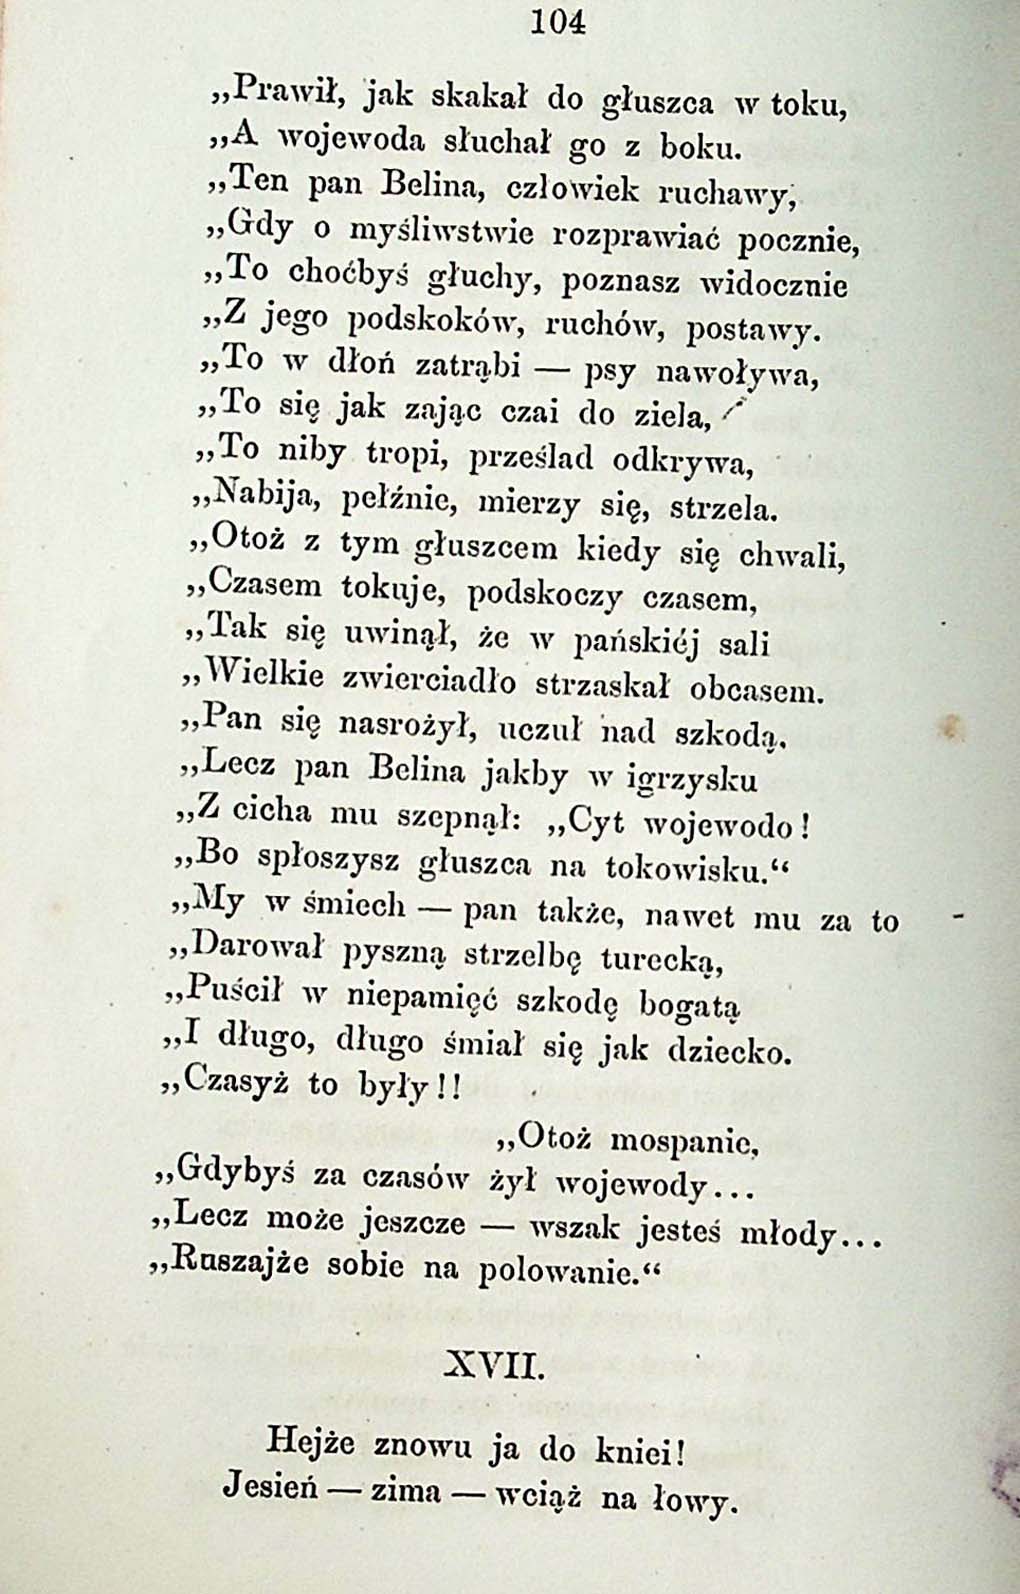 104
„Prawił, jak skakał do głuszca w toku,
„A wojewoda słuchał go z boku.
„Ten pan Belina, człowiek ruchawy,
„Gdy o myśliwstwie rozprawiać pocznie,
„To choćbyś głuchy, poznasz widocznie
„Z jego podskoków, ruchów, postawy.
„To w dłoń zatrąbi — psy nawoływa,
„To się jak zając czai do ziela,
„To niby tropi, prześlad odkrywa,
„Nabija, pełźnie, mierzy się, strzela.
„Otoż z tym głuszcem kiedy się chwali,
„Czasem tokuje, podskoczy czasem,
„Tak się uwinął, że w pańskiéj sali
„Wielkie zwierciadło strzaskał obcasem.
„Pan się nasrożył, uczuł nad szkodą,
„Lecz pan Belina jakby w igrzysku
„Z cicha mu szepnął: „Cyt wojewodo!
„Bo spłoszysz głuszca na tokowisku.“
„My w śmiech — pan także, nawet mu za to
„Darował pyszną strzelbę turecką,
„Puścił w niepamięć szkodę bogatą
„I długo, długo śmiał się jak dziecko.
„Czasyż to były!!
„Otoż mospanie,
„Gdybyś za czasów żył wojewody...
„Lecz może jeszcze — wszak jesteś młody...
„Ruszajże sobie na polowanie.“
XVII.
Hejże znowu ja do kniei!
Jesień — zima — wciąż na łowy.